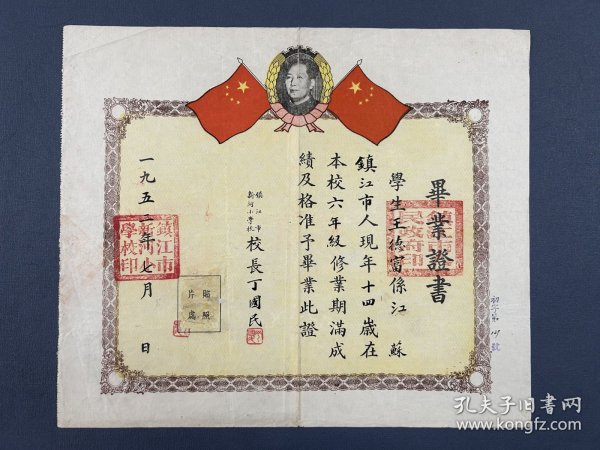 畢業證書
學生王德富係江蘇
鎮江市人現年十四歲在
本校六年級修業期滿成
績及格准予畢業此證
鎮江市
新河小學校
校長丁國民
貼照
片處
一九五二年七月 日
鎮江市
新河小
學校印
鎮江市
民政府印
初字第 號
孔夫子旧书网
www.kongfz.com